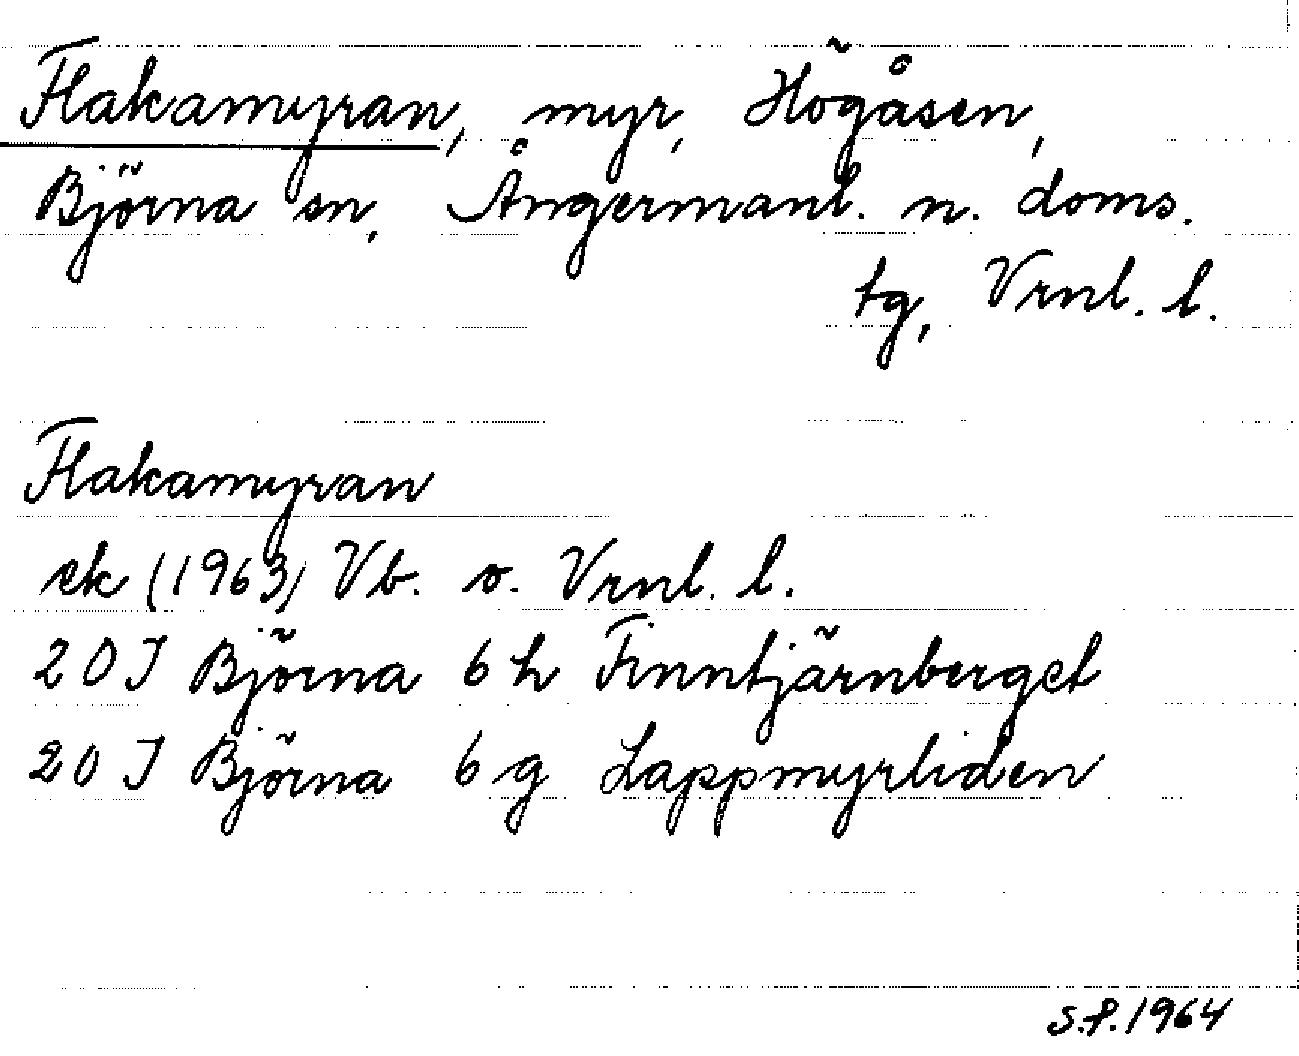 Flakamyran, myr, Högåsen,
Björna sn, Ångermanl. n. doms.
tg, Vrnl. l.
Flakamyran
ek (1963) Vb. o. Vrnl. l.
20 I Björna 6 h Finntjärnberget
20 I Björna 6 g Lappmyrliden
S.P. 1964